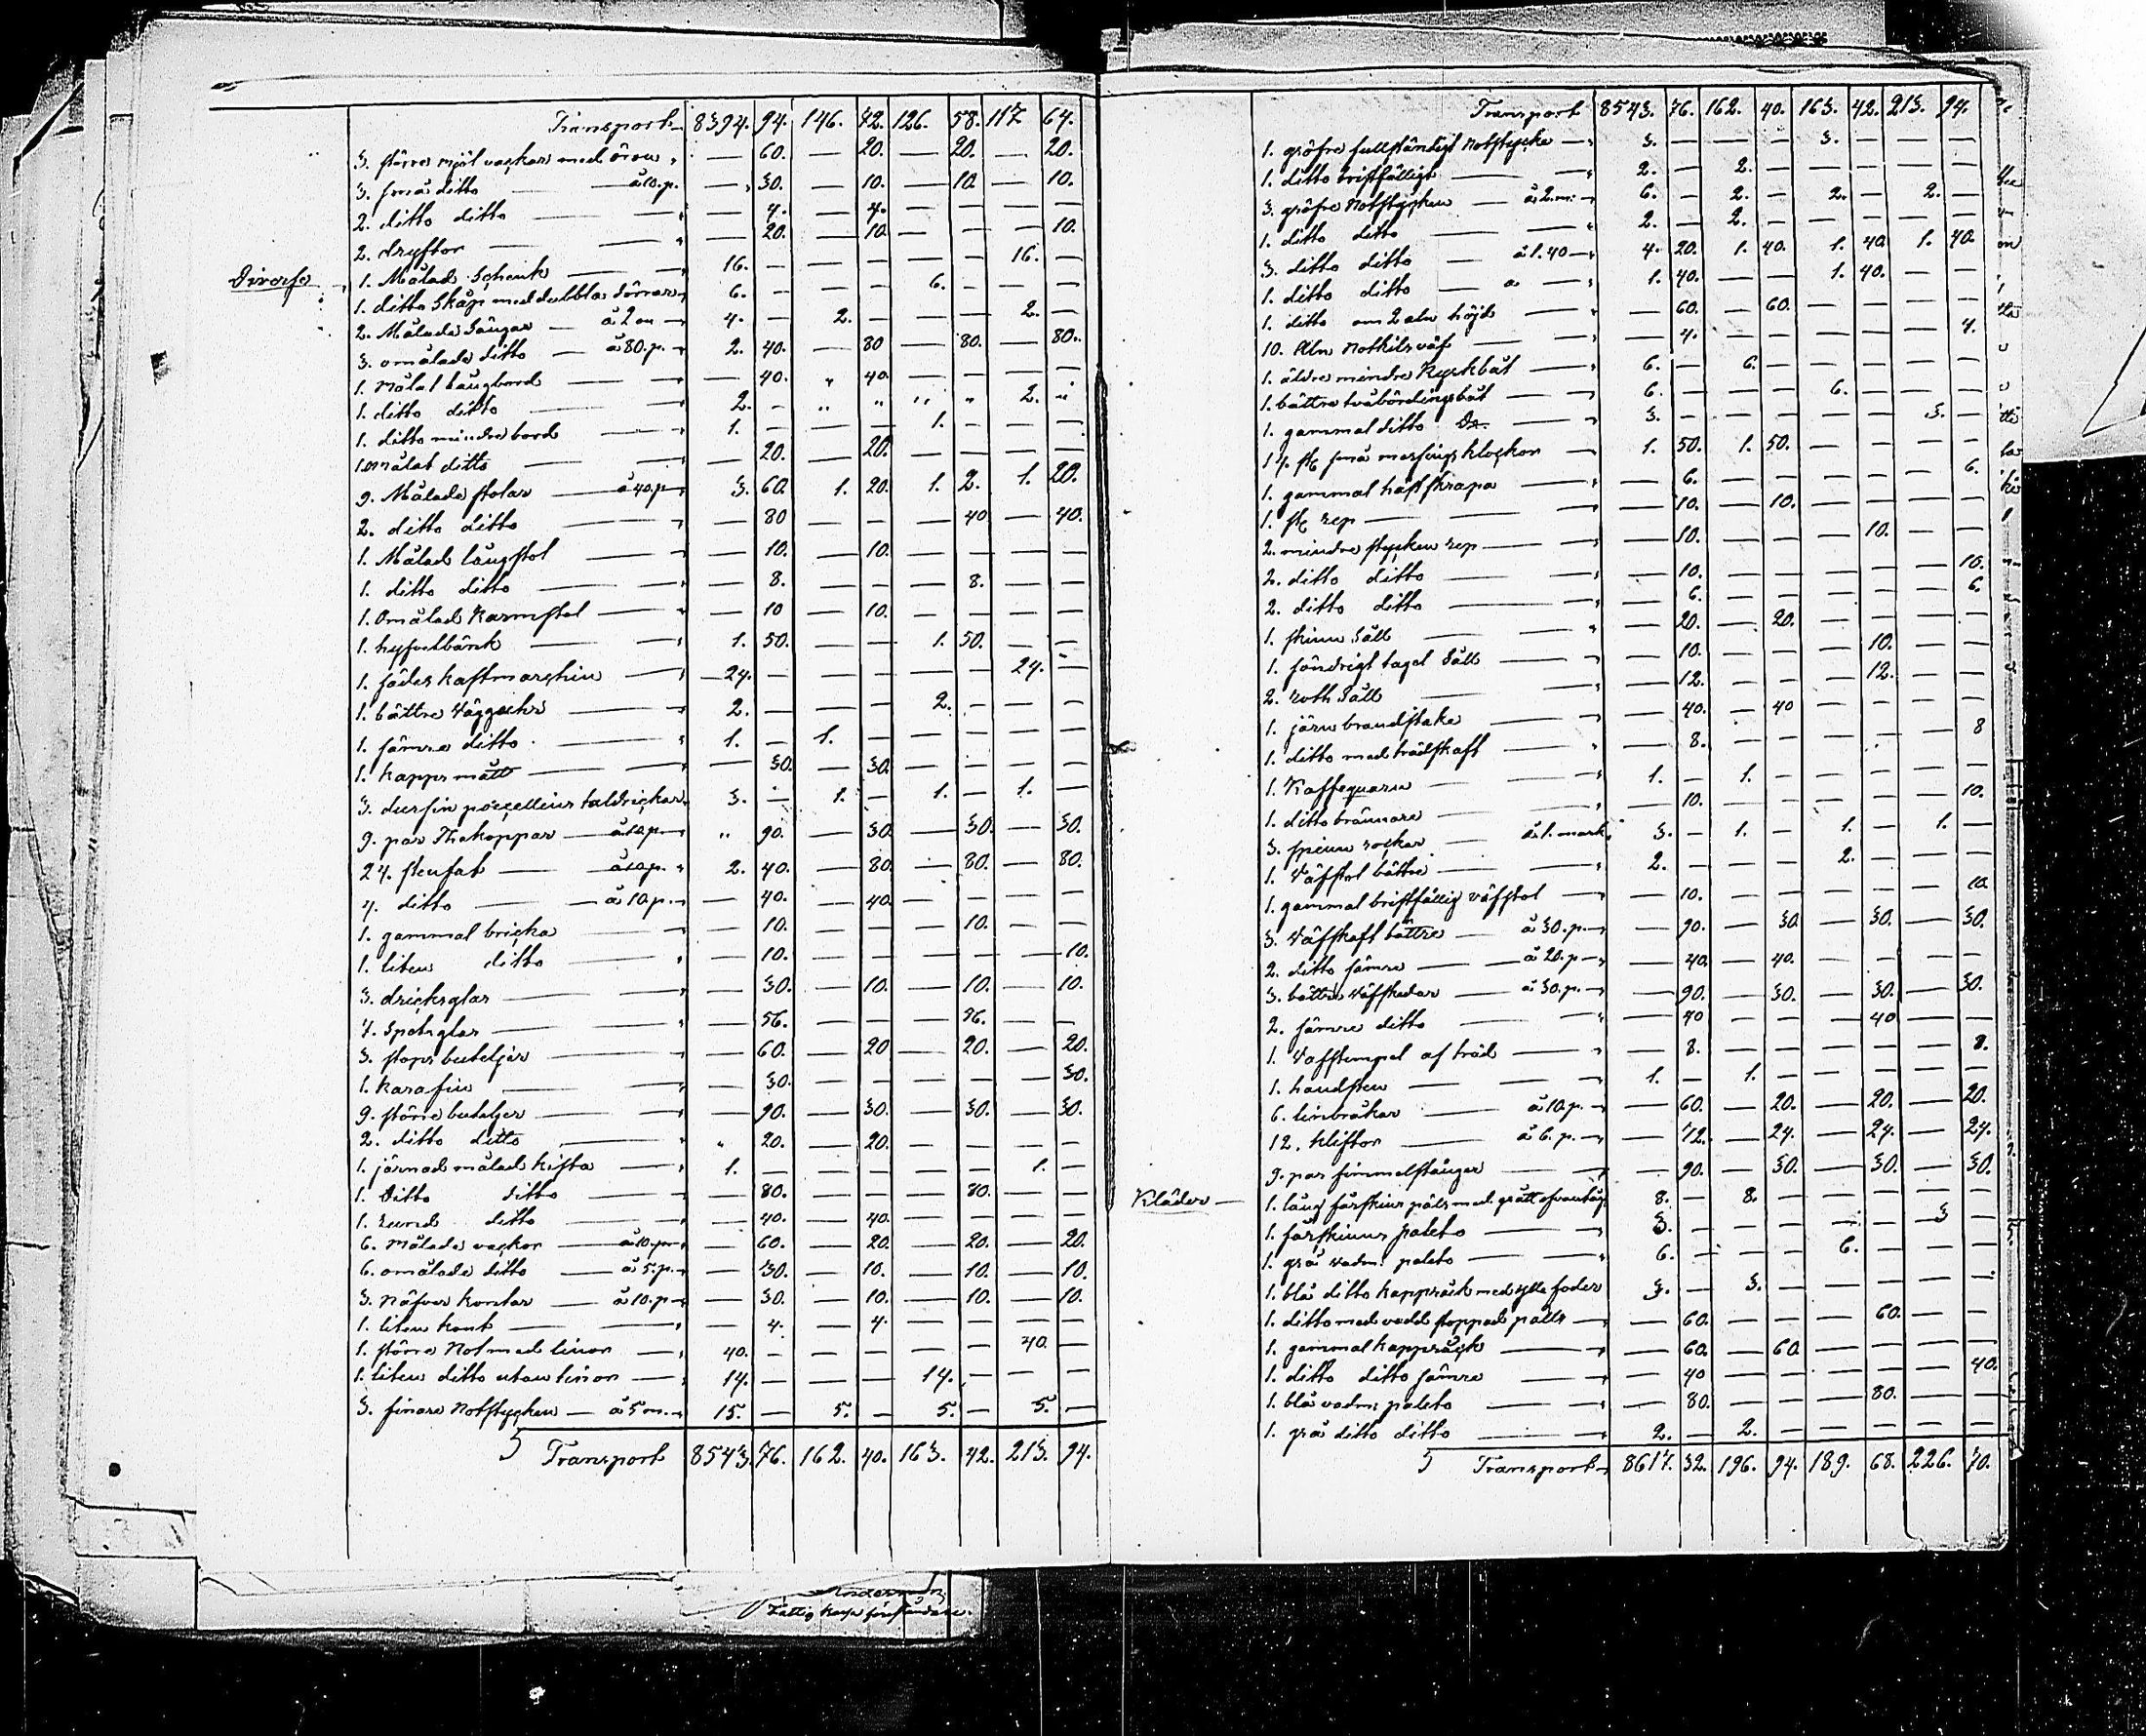 Transport 8394. 94. 146. 42. 126. 58. 117 64.
3. större mjöl vackor med öron — 60. — 20. — 20. — 20.
3. små ditto — à 10. p. — 30. — 10. — 10 — 10.
2. ditto ditto — 4. — 4. — — — —
2. dryftor — 20. — 10. — — — 10.
Diverse 1. Målad Schenk — 16. — — — — — 16. —
1. ditto Skåp med dubbla dörrar 6. — — — 6. — — —
2. Målade Sängar — à 2 m — 4. — 2. — — — 2. —
3. omålade ditto — à 80. p. 2. 40. — 80 — 80. — 80.
1. Målat långbord — 40. " 40. — — — —
1. ditto ditto — 2. — " " " " 2. "
1. ditto mindre bord — 1. — — — 1. — — —
1. omålat ditto — 20. — 20. — — — —
9. Målade stolar — à 40. p. 3. 60. 1. 20. 1. 2. 1. 20.
2. ditto ditto — 80 — — — 40 — 40.
1. Målad långstol — 10. — 10. — — — —
1. ditto ditto — 8. — — — 8. — —
1. Omålad Karmstol — 10 — 10. — — — —
1. hyfvelbänk — 1. 50. — — 1. 50. — —
1. häckmaschin — 24. — — — — — 24. —
1. bättre Vägguhr — 2. — — — 2. — — —
1. sämre ditto — 1. — 1. — — — — —
1. kapps mått — 30. — 30. — — — —
3. porcellins taldrickar 3. — 1. — 1. — 1. —
9. par Thekoppar — à 10. p. " 90. — 30. — 30. — 30.
24. stenfat — à 10 p. 2. 40. — 80. — 80. — 80.
4. ditto — à 10. p. — 40. — 40. — — — —
1. gammal bricka — 10. — — — 10. — —
1. liten ditto — 10. — — — — — 10.
3. dricksglas — 30. — 10. — 10. — 10.
7. Spetsglas — 56. — — — 56. — —
3. stops buteljer — 60. — 20 — 20. — 20.
1. karafin — 30. — — — — — 30.
9. större buteljer — 90. — 30. — 30. — 30.
2. ditto ditto " 20. — 20. — — — —
1. järnad målad kista — 1. — — — — — 1. —
1. Ditto ditto — 80. — — — 80. — —
1. rund ditto — 40. — 40. — — — —
6. målade vackor — à 10. p. — 60. — 20. — 20. — 20.
6. omålade ditto — à 5. p. — 30. — 10. — 10. — 10.
3. Näfver kontar — à 10. p. — 30. — 10. — 10. — 10.
1. liten kont — 4. — 4. — — — —
1. större Not med linor — 40. — — — — — 40. —
1. liten ditto utan linor — 14. — — — 14. — — —
3. finare Notstycken — à 5 m. 15. — 5. — 5. — 5. —
Transport 8543. 76. 162. 40. 163. 42. 213. 94.
Transport 8543. 76. 162. 40. 163. 42. 213. 94.
1. gröfre fullständigt Notstycke — 3. — — — 3. — — —
1. ditto bristfälligt — 2. — 2. — — — — —
3. gröfre Notstycken — à 2. m. 6. — 2. — 2. — 2. —
1. ditto ditto — 2. — 2. — — — — —
3. ditto ditto — à 1. 40 — 4. 20. 1. 40. 1. 40. 1. 40.
1. ditto ditto — a — 1. 40. — — 1. 40. — —
1. ditto om 2 aln höjd — 60. — 60. — — — —
10. Aln Notkils väf — 4. — — — — — 4.
1. äldre mindre Kyrkbåt — 6. — 6. — — — — —
1. bättre tvåbördingsbåt — 6. — — — 6. — — —
1. gammal ditto Do. — 3. — — — — — 3. —
14. st små messings klockor — 1. 50. 1. 50. — — — —
1. gammal hästskrapa — 6. — — — — — 6.
1. st rep — 10. — 10. — — — —
2. mindre stycken rep — 10. — — — 10. — —
2. ditto ditto — 10. — — — — — 10.
2. ditto ditto — 6. — — — — — 6.
1. skinn Såll — 20. — 20. — — — —
1. söndrigt tagel Såll — 10. — — — 10. — —
2. roth Såll — 12. — — — 12. — —
1. järn brandstake — 40. — 40 — — — —
1. ditto med trädskaft — 8. — — — — — 8
1. Kaffequarn — 1. — 1. — — — — —
1. ditto brännare — 10. — — — — — 10.
3. spinn rockar — à 1. mark. 3. — 1. — 1. — 1. —
1. Väfstol bättre — 2. — — — 2. — — —
1. gammal bristfällig väfstol — 10. — — — — — 10.
3. Väfskaft bättre — à 30. p. — 90. — 30. — 30. — 30.
2. ditto sämre — à 20. p — 40. — 40. — — — —
3. bättre Väfskedar — à 30. p. — 90. — 30. — 30. — 30.
2. sämre ditto — 40 — — — 40 — —
1. Väfstempel af träd — 8. — — — — — 8.
1. handsten — 1. — 1. — — — — —
6. linbråkar — à 10. p. — 60. — 20. — 20. — 20.
12. kliftor — à 6. p. — 72. — 24. — 24. — 24.
9. par fimmelstänger — 90. — 30. — 30. — 30.
Kläder — 1. lång fårskins päls med grått 8. — 8. — — — — —
1. fårskinns paleto — 3. — — — — — 3 —
1. grå vadm. paleto — 6. — — — 6. — — —
1. blå ditto kappråck med ylle foder 3. — 3. — — — — —
1. ditto med vadd stoppad — 60. — — — 60. — —
1. gammal kappråck — 60. — 60. — — — —
1. ditto ditto sämre — 40 — — — — — 40.
1. blå vadm: paleto — 80. — — — 80. — —
1. grå ditto ditto — 2. — 2. — — — — —
Transport 8617. 32. 196. 94. 189. 68. 226. 70.